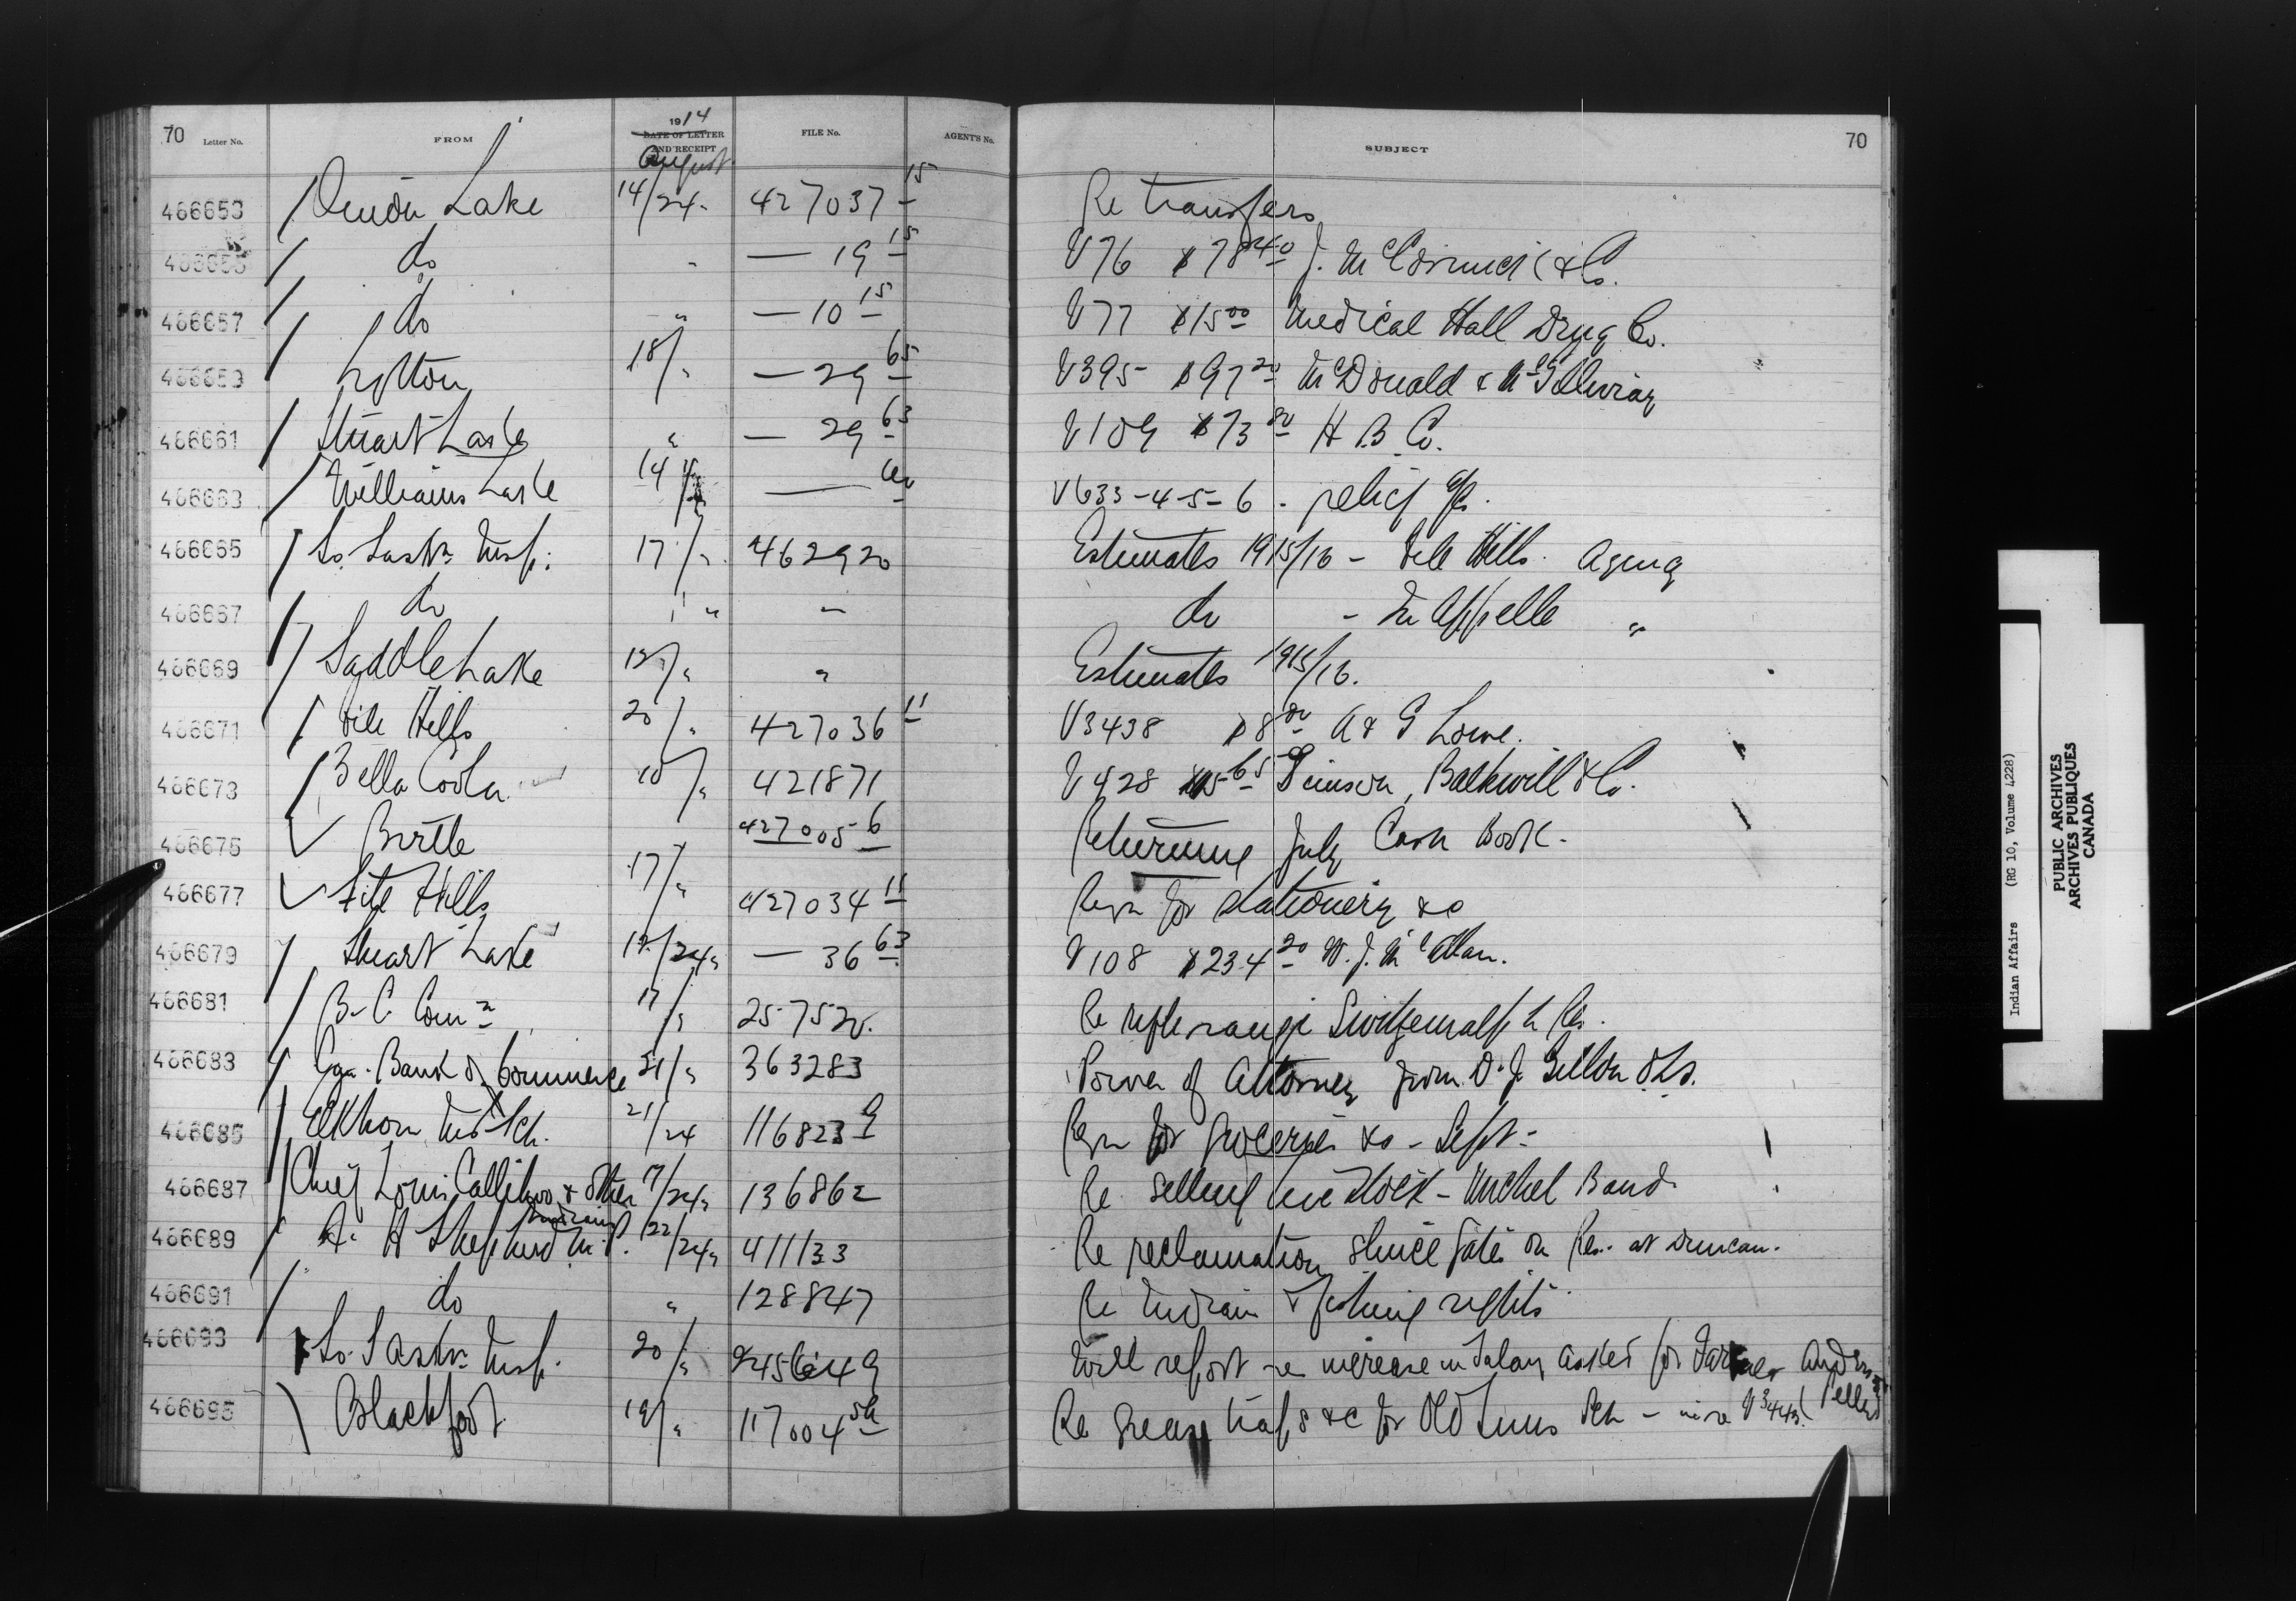 70 Letter No. FROM 1914 DATE OF LETTER AND RECEIPT FILE No. AGENT'S No. SUBJECT 70
August
466653 Onion Lake 14/24 427037 15 Re transfers
466655 do " — 19 15 V76 $78 40 J. McCormick & Co.
466657 do " — 10 15 V77 $15 00 Medical Hall Drug Co.
466659 Lytton 18/" — 29 65 V395 $97 20 McDonald & McGillivray
466661 Stuart Lake " — 29 63 V109 $73 80 H B Co.
466663 Williams Lake 14/" — V633-4-5-6 relief
466665 So. Sask'n Insp. 17/" 462920 Estimates 1915/16 - File Hills Agency
466667 do " " — do - Qu Appelle "
466669 Saddle Lake 12/" " Estimates 1915/16.
466671 File Hills 20/" 427036 11 V3438 $8 80 A & G Lowe.
466673 Bella Coola 10/" 421871 V428 Balkwill & Co.
466675 Birtle 427005 6 Returning July Cash Book.
466677 File Hills 17/" 427034 11 Reqn for stationery &c
466679 Stuart Lake 12/24 " — 36 63 V108 $234 20 W. J. McAllan.
466681 B. C. Com'n 17/" 257520 Re rifle range Res.
466683 Can. Bank of Commerce 21/" 363283 Power of Attorney from D. J.
466685 Elkhorn Ind Sch. 21/24 116823 9 Reqn for groceries &c - Sept -
466687 Chief Louis Callihoo & other Indians 17/24 " 136862 Re selling live stock - Michel Band.
466689 A. H Shepherd M.P. 22/24 " 411133 Re reclamation sluice gates on Res. at Duncan.
466691 do " 128847 Re Indian fishing rights
466693 So. Sask'n Insp. 20/" 245649 Will report re increase in salary asked for Farmer
466695 Blackfoot 19/" 117004 Re grease traps &c for Old Suns Sch - V3443.
Indian Affairs (RG 10, Volume 4228)
PUBLIC ARCHIVES
ARCHIVES PUBLIQUES
CANADA